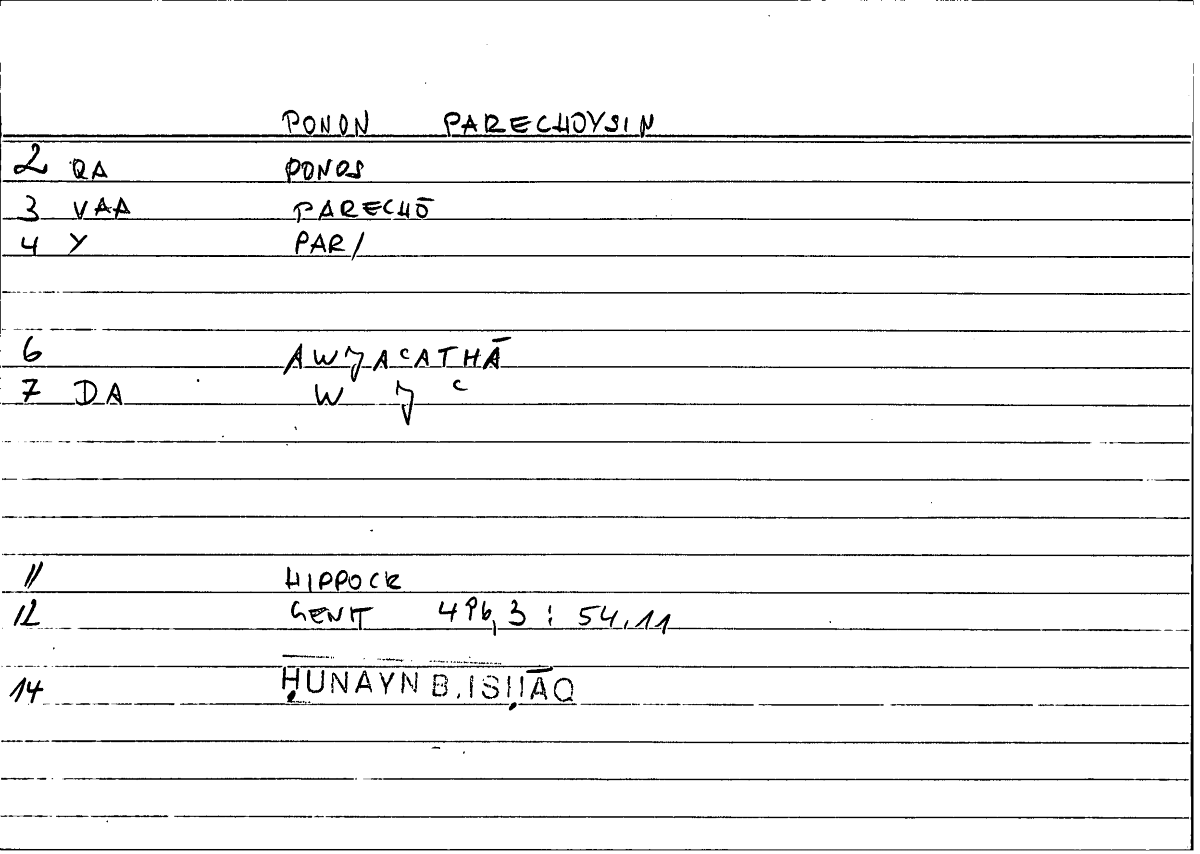 PONON PARECHOYSIN
2 QA PONOS
3 VAA PARECHŌ
4 Y PAR/
6 AWJAᶜATHĀ
7 DA W J ᶜ
11 HIPPOCR
12 GENIT 496,3 : 54,11
14 ḤUNAYN B. ISḤĀQ